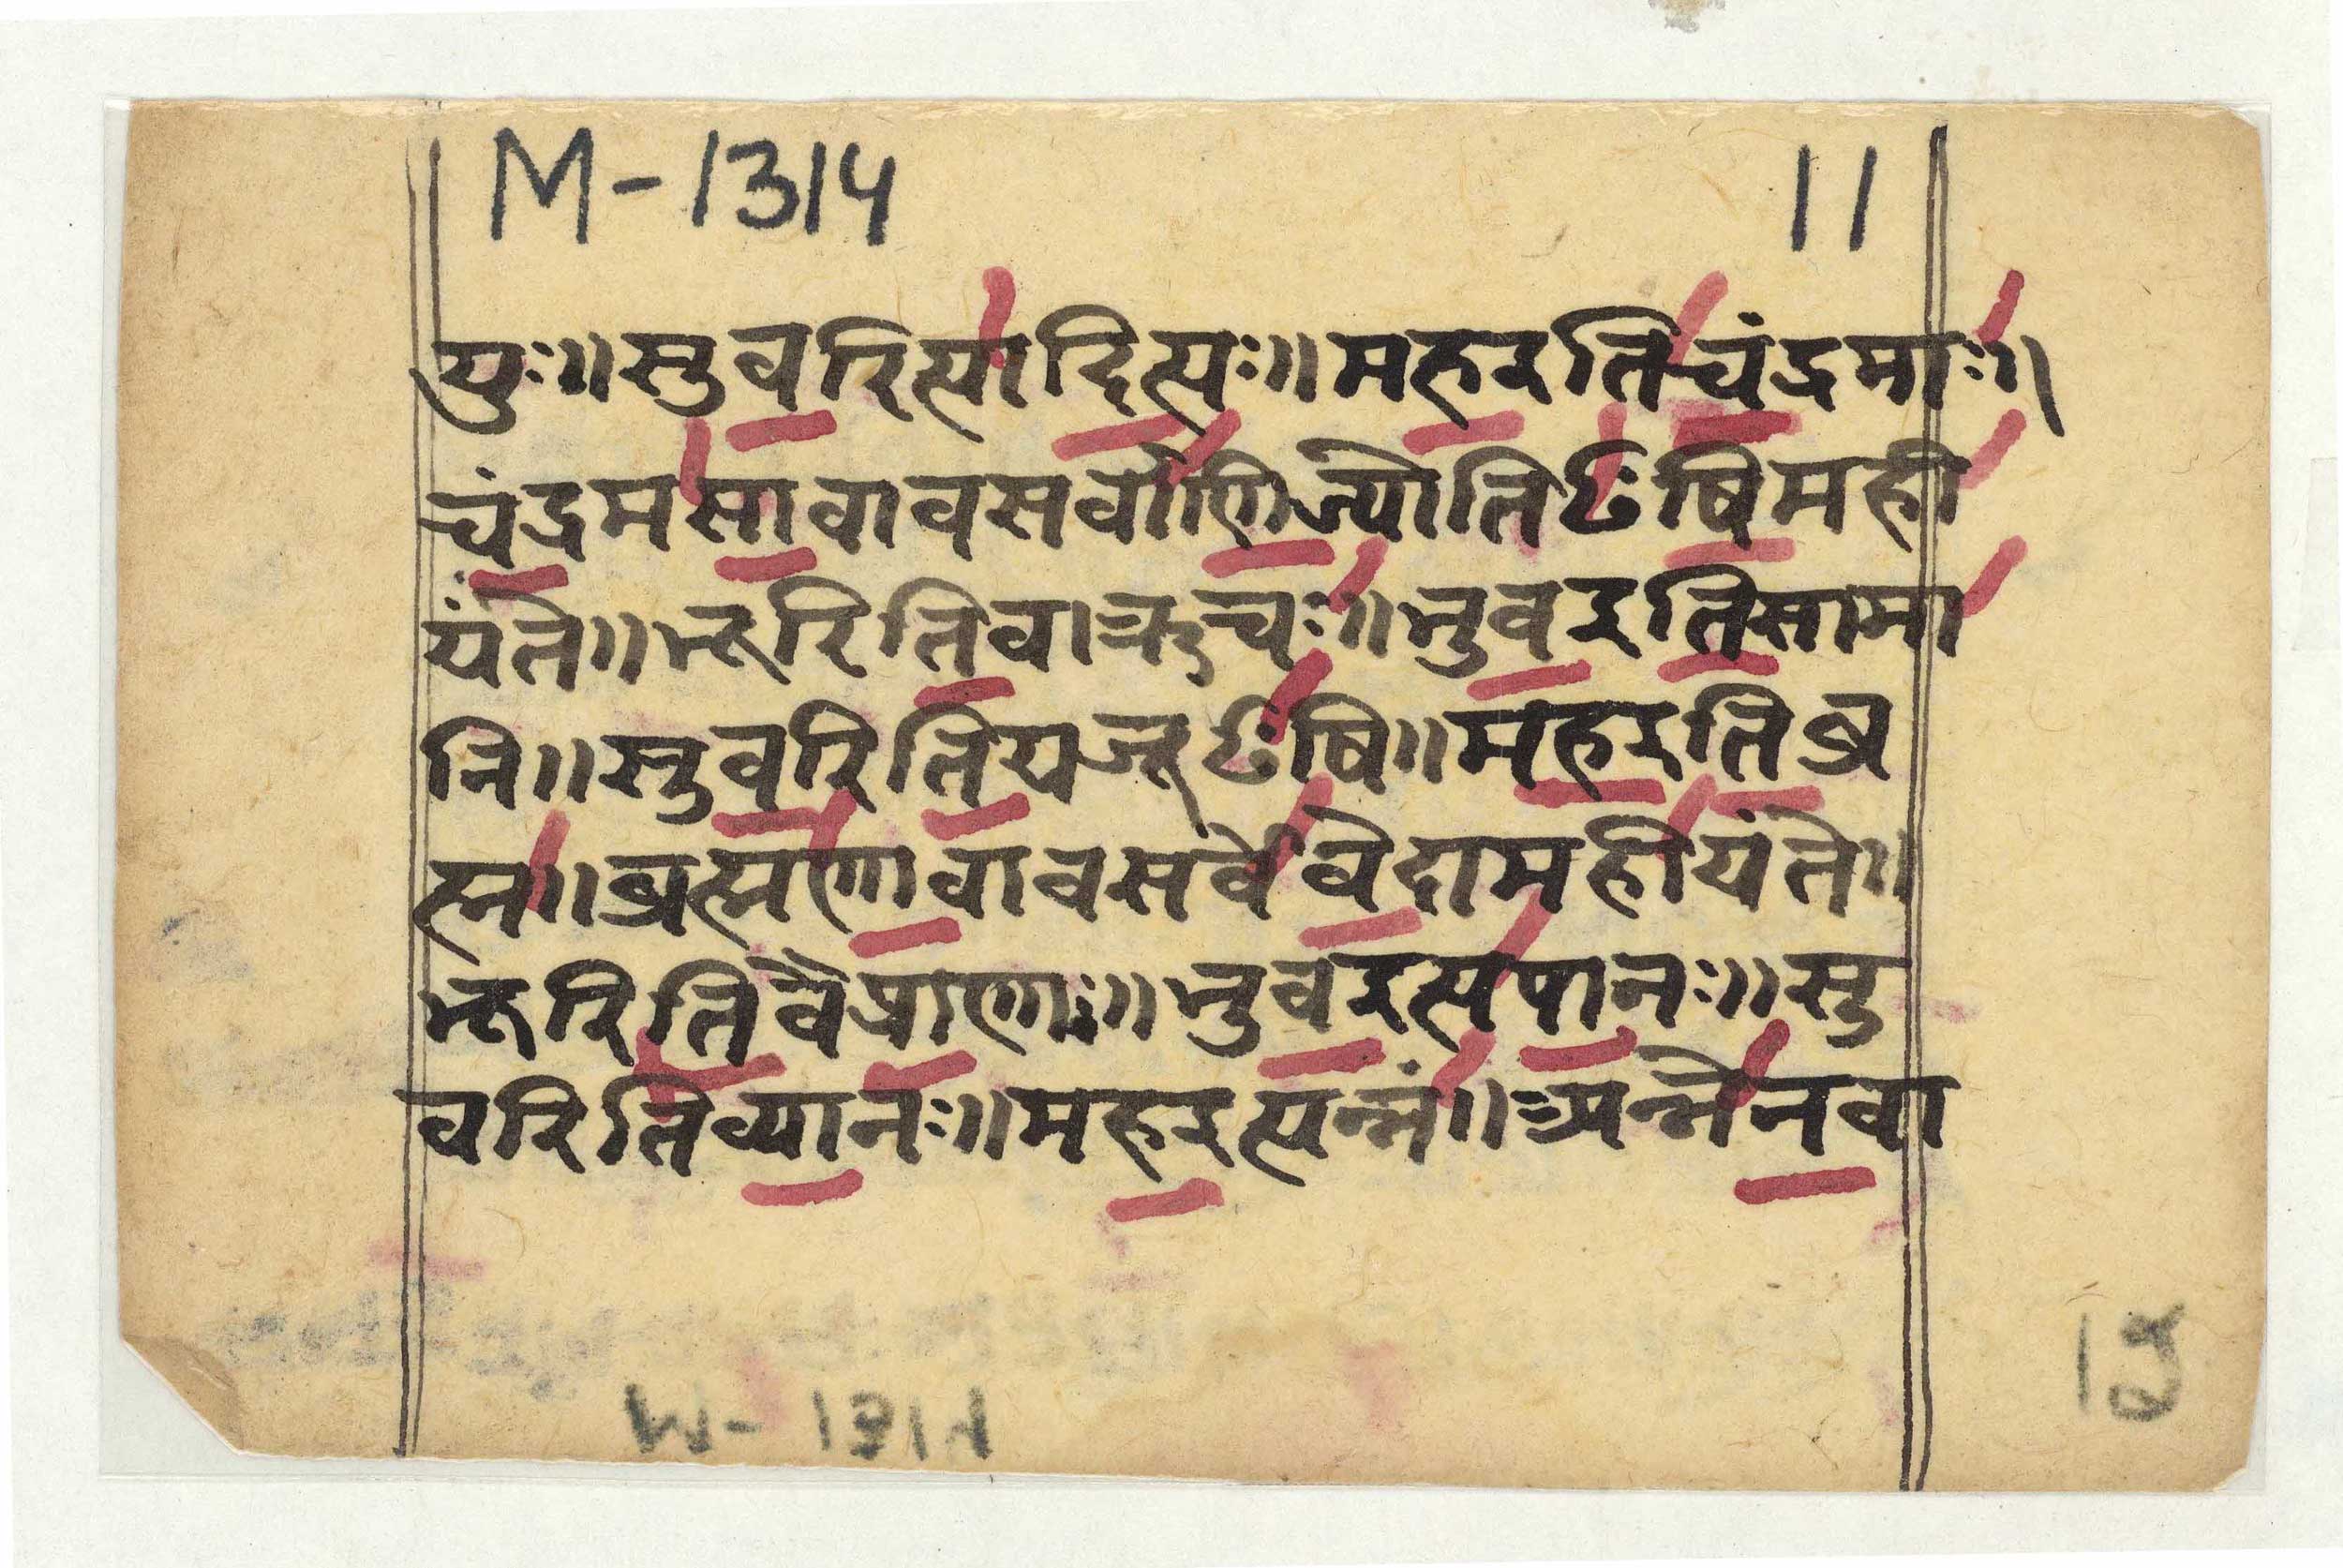 M-1314 11
युः॥सुवरित्यादित्यः॥महइतिचंद्रमाः॥
चंद्रमसावावसर्वाणिज्योतिꣳषिमही
यंते॥भूरितिवाऋचः॥भुवइतिसामा
नि॥सुवरितियजूꣳषि॥महइतिब्र
ह्म॥ब्रह्मणावावसर्वेवेदामहीयंते॥
भूरितिवैप्राणः॥भुवइत्यपानः॥सु
वरितिव्यानः॥महइत्यन्नं॥अन्नेनवा